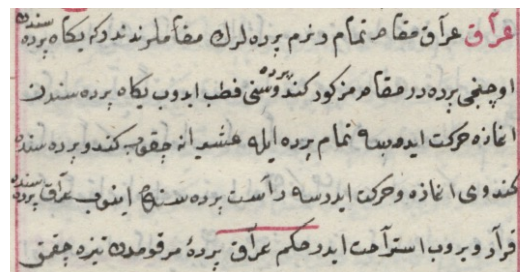 عراق عراق مقامر تمام و نرم پرده لرك مقاملرندندركه یکاه پرده سندن
اوچنجی پرده در مقام مزكور كندو پرده سنی قطب ایدوب یکاه پرده سندن
اغازه حركت ایدرسه تمام پرده ایله عشیرانه چقوب كندو پرده سنده
كندوی اغازه و حركت ایدرسه راست پرده سنه اینوب عراق پرده سنده
قرار ویروب استراحت ایدر حكم عراق پردهٔ مرقومدن تیزه چقمق